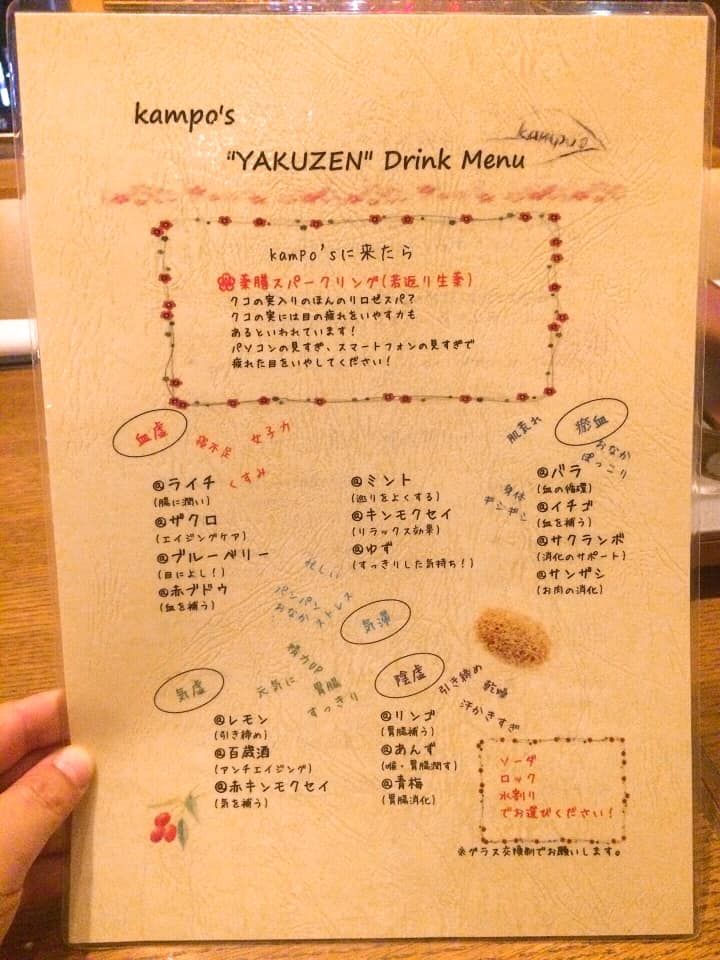 kampo's
kampo's
"YAKUZEN" Drink Menu
kampo'sに来たら
薬膳スパークリング(若返り生薬)
クコの実入りのほんのりロゼスパ♪
クコの実には目の疲れをいやす力も
あるといわれています!
パソコンの見すぎ、スマートフォンの見すぎで
疲れた目をいやしてください!
血虚
寝不足
女子力
くすみ
@ライチ
(腸に潤い)
@ザクロ
(エイジングケア)
@ブルーベリー
(目によし!)
@赤ブドウ
(血を補う)
@ミント
(巡りをよくする)
@キンモクセイ
(リラックス効果)
@ゆず
(すっきりした気持ち!)
忙しい
パンパン
おなか
ストレス
気滞
瘀血
肌荒れ
おなか
ぽっこり
身体
ギシギシ
@バラ
(血の循環)
@イチゴ
(血を補う)
@サクランボ
(消化のサポート)
@サンザシ
(お肉の消化)
気虚
元気に
精力UP
胃腸
すっきり
@レモン
(引き締め)
@百歳酒
(アンチエイジング)
@赤キンモクセイ
(気を補う)
陰虚
引き締め
乾燥
汗かきすぎ
@リンゴ
(胃腸補う)
@あんず
(喉・胃腸潤す)
@青梅
(胃腸消化)
ソーダ
ロック
水割り
でお選びください!
※グラス交換制でお願いします。